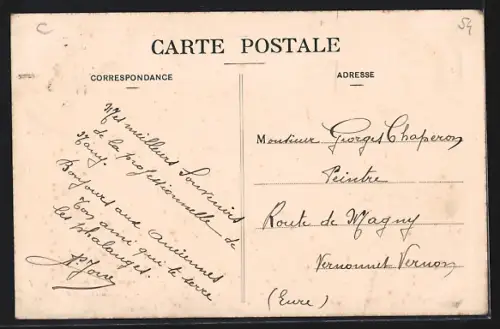 C
54
CARTE POSTALE
CORRESPONDANCE
ADRESSE
Mes meilleurs Souvenirs
de la professionnelle de
Nancy.
Bonjours aux anciennes
Ton ami qui te serre
les phalanges.
Monsieur Georges Chaperon
Peintre
Route de Magny
Vernonnet Vernon
(Eure)